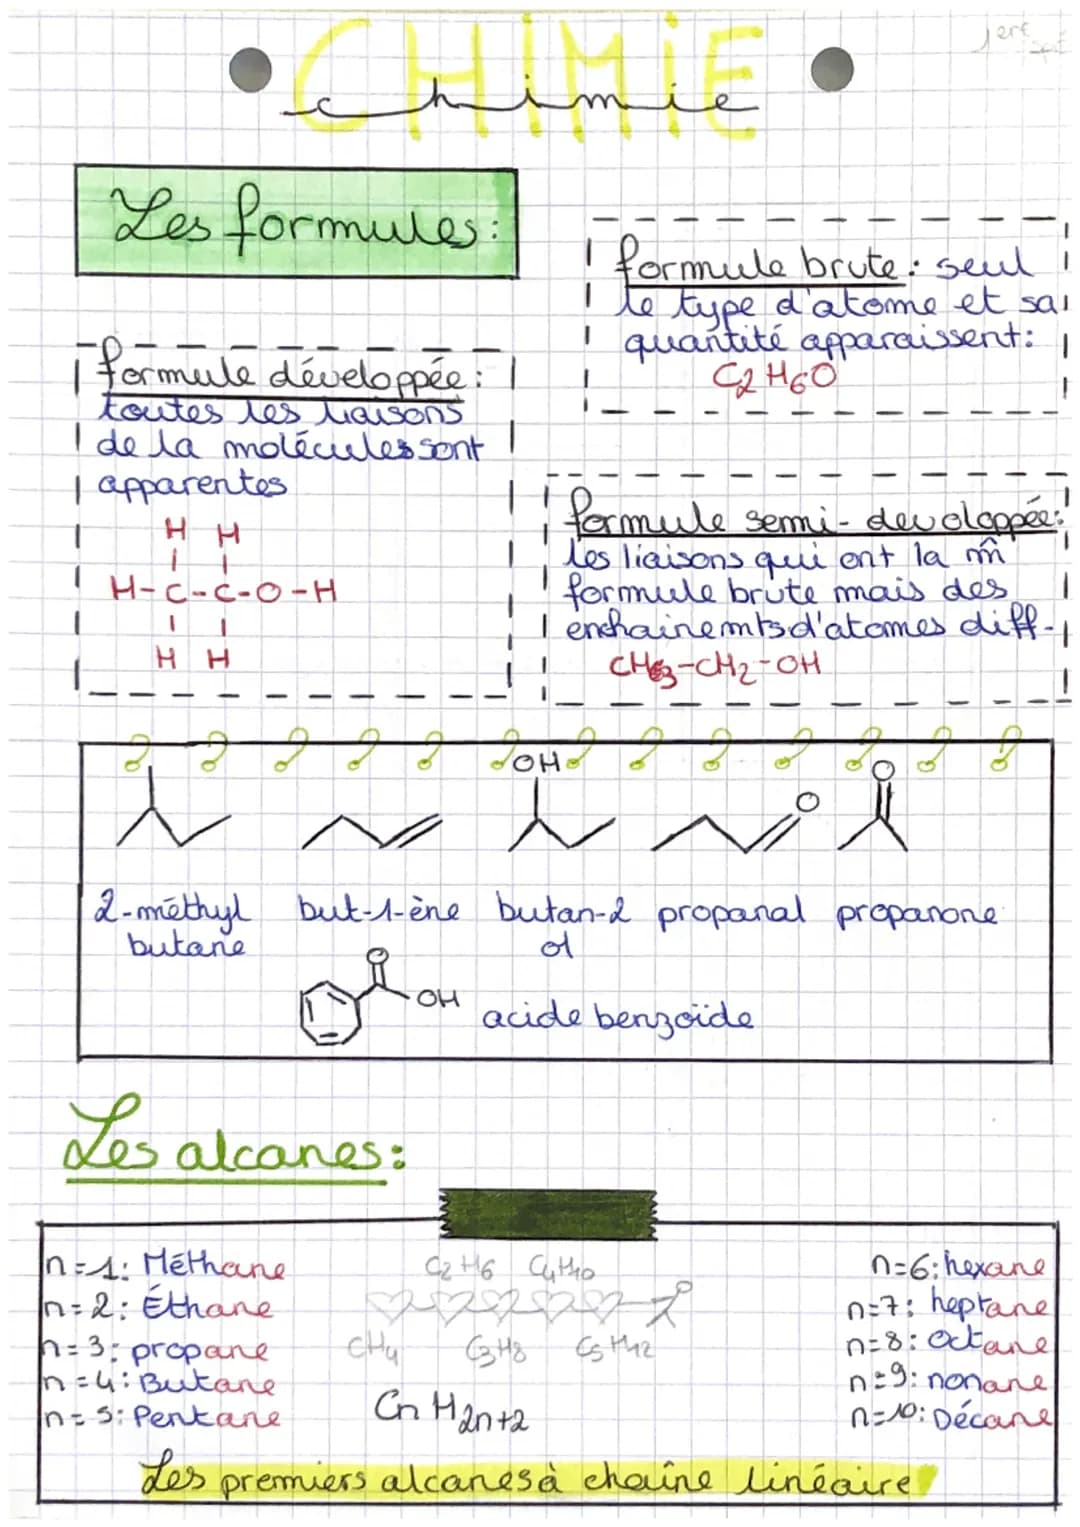 CHIMIE
chimie
1ere
Les formules:
formule brute: seul
le type d'atome et sa
quantité apparaissent:
C2H6O
formule développée:
toutes les liaisons
de la molécules sont
apparentes
H H
H-C-C-O-H
H H
formule semi-developpée:
les liaisons qui ont la m̂
formule brute mais des
enchainemts d'atomes diff.
CH3-CH2-OH
OH
O
O
2-méthyl
butane
but-1-ène
butan-2
ol
propanal
propanone
O
OH
acide benzoïde
Les alcanes:
n=1: Méthane
n=2: Éthane
n=3: propane
n=4: Butane
n=5: Pentane
C2H6 C4H10
CH4 C3H8 C5H12
CnH2n+2
n=6: hexane
n=7: heptane
n=8: octane
n=9: nonane
n=10: Décane
Les premiers alcanes à chaîne linéaire